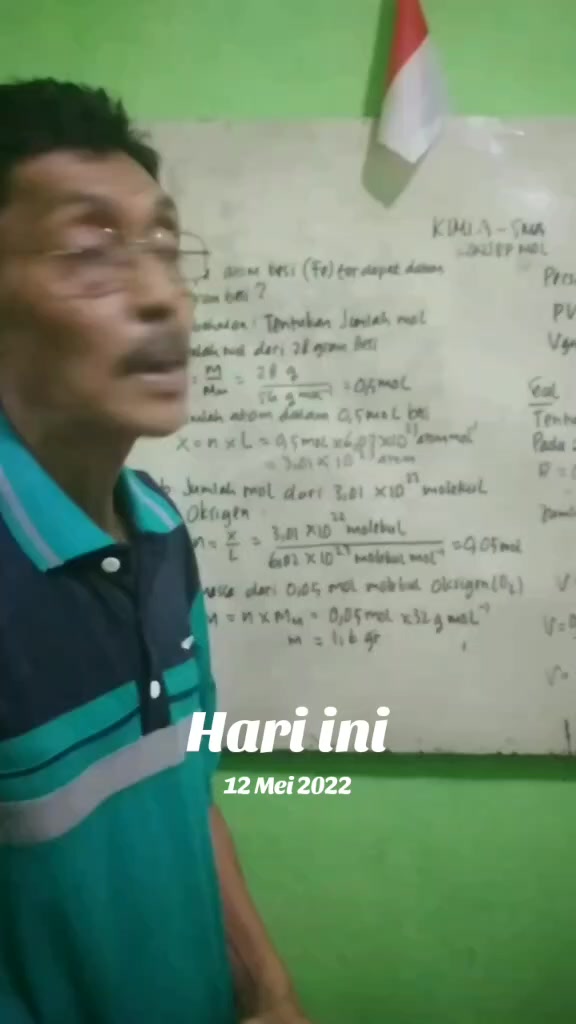 KIMIA - SMA
KONSEP MOL
atom besi (Fe) terdapat dalam
besi?
Tentukan Jumlah mol
dari 28 gram besi
= M/Mm = 28 g / 56 g mol⁻¹ = 0,5 mol
atom dalam 0,5 mol besi
X = n x L = 0,5 mol x 6,02 x 10²³ atom mol⁻¹
= 3,01 x 10²³ atom
b. Jumlah mol dari 3,01 x 10²² molekul
Oksigen
n = X/L = 3,01 x 10²² molekul / 6,02 x 10²³ molekul mol⁻¹ = 0,05 mol
dari 0,05 mol molekul Oksigen (O₂)
m = n x Mm = 0,05 mol x 32 g mol⁻¹
m = 1,6 gr
PV
Soal
Pada
V
V = 0
V =
Hari ini
12 Mei 2022